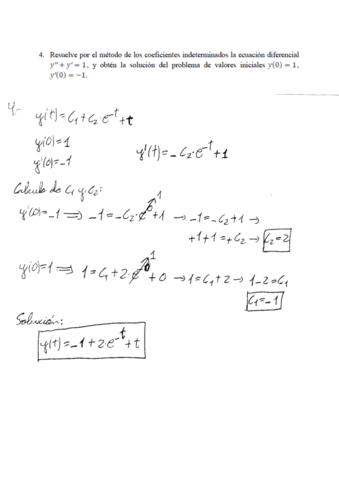 4. Resuelve por el método de los coeficientes indeterminados la ecuación diferencial
y'' + y' = 1, y obtén la solución del problema de valores iniciales y(0) = 1,
y'(0) = −1.
4.-
y(t) = C₁ + C₂·e^-t + t
y(0) = 1
y'(0) = -1
y'(t) = -C₂·e^-t + 1
Cálculo de C₁ y C₂:
y'(0) = -1 ⟹ -1 = -C₂·e^0 + 1 → -1 = -C₂ + 1 →
1
+1 + 1 = +C₂ → C₂ = 2
y(0) = 1 ⟹ 1 = C₁ + 2·e^-0 + 0 → 1 = C₁ + 2 → 1 - 2 = C₁
1
C₁ = -1
Solución:
y(t) = -1 + 2·e^-t + t